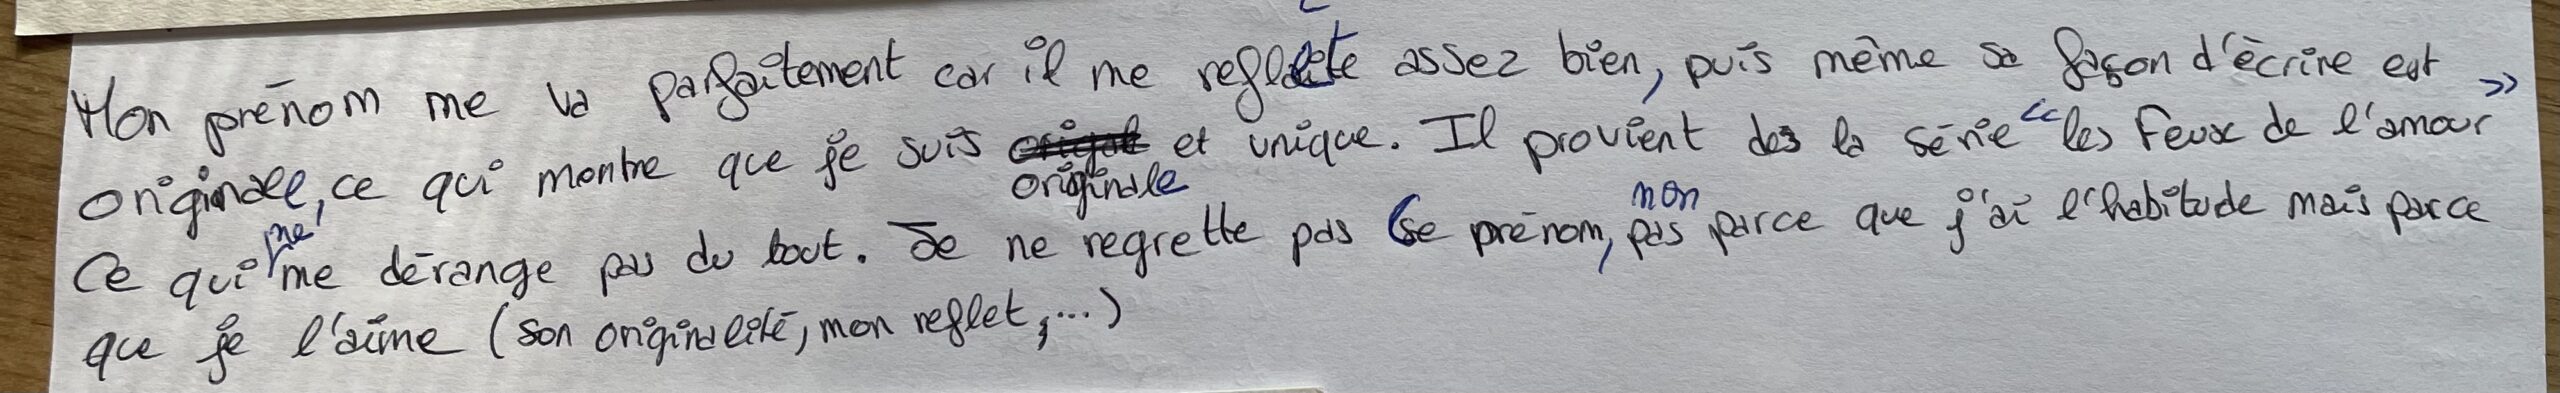 Mon prénom me va parfaitement car il me reflète assez bien, puis même sa façon d'écrire est
originale, ce qui montre que je suis originale et unique. Il provient des la série "les Feux de l'amour"
Ce qui ne me dérange pas du tout. Je ne regrette pas ce prénom, non pas parce que j'ai l'habitude mais parce
que je l'aime (son originalité, mon reflet, ...)